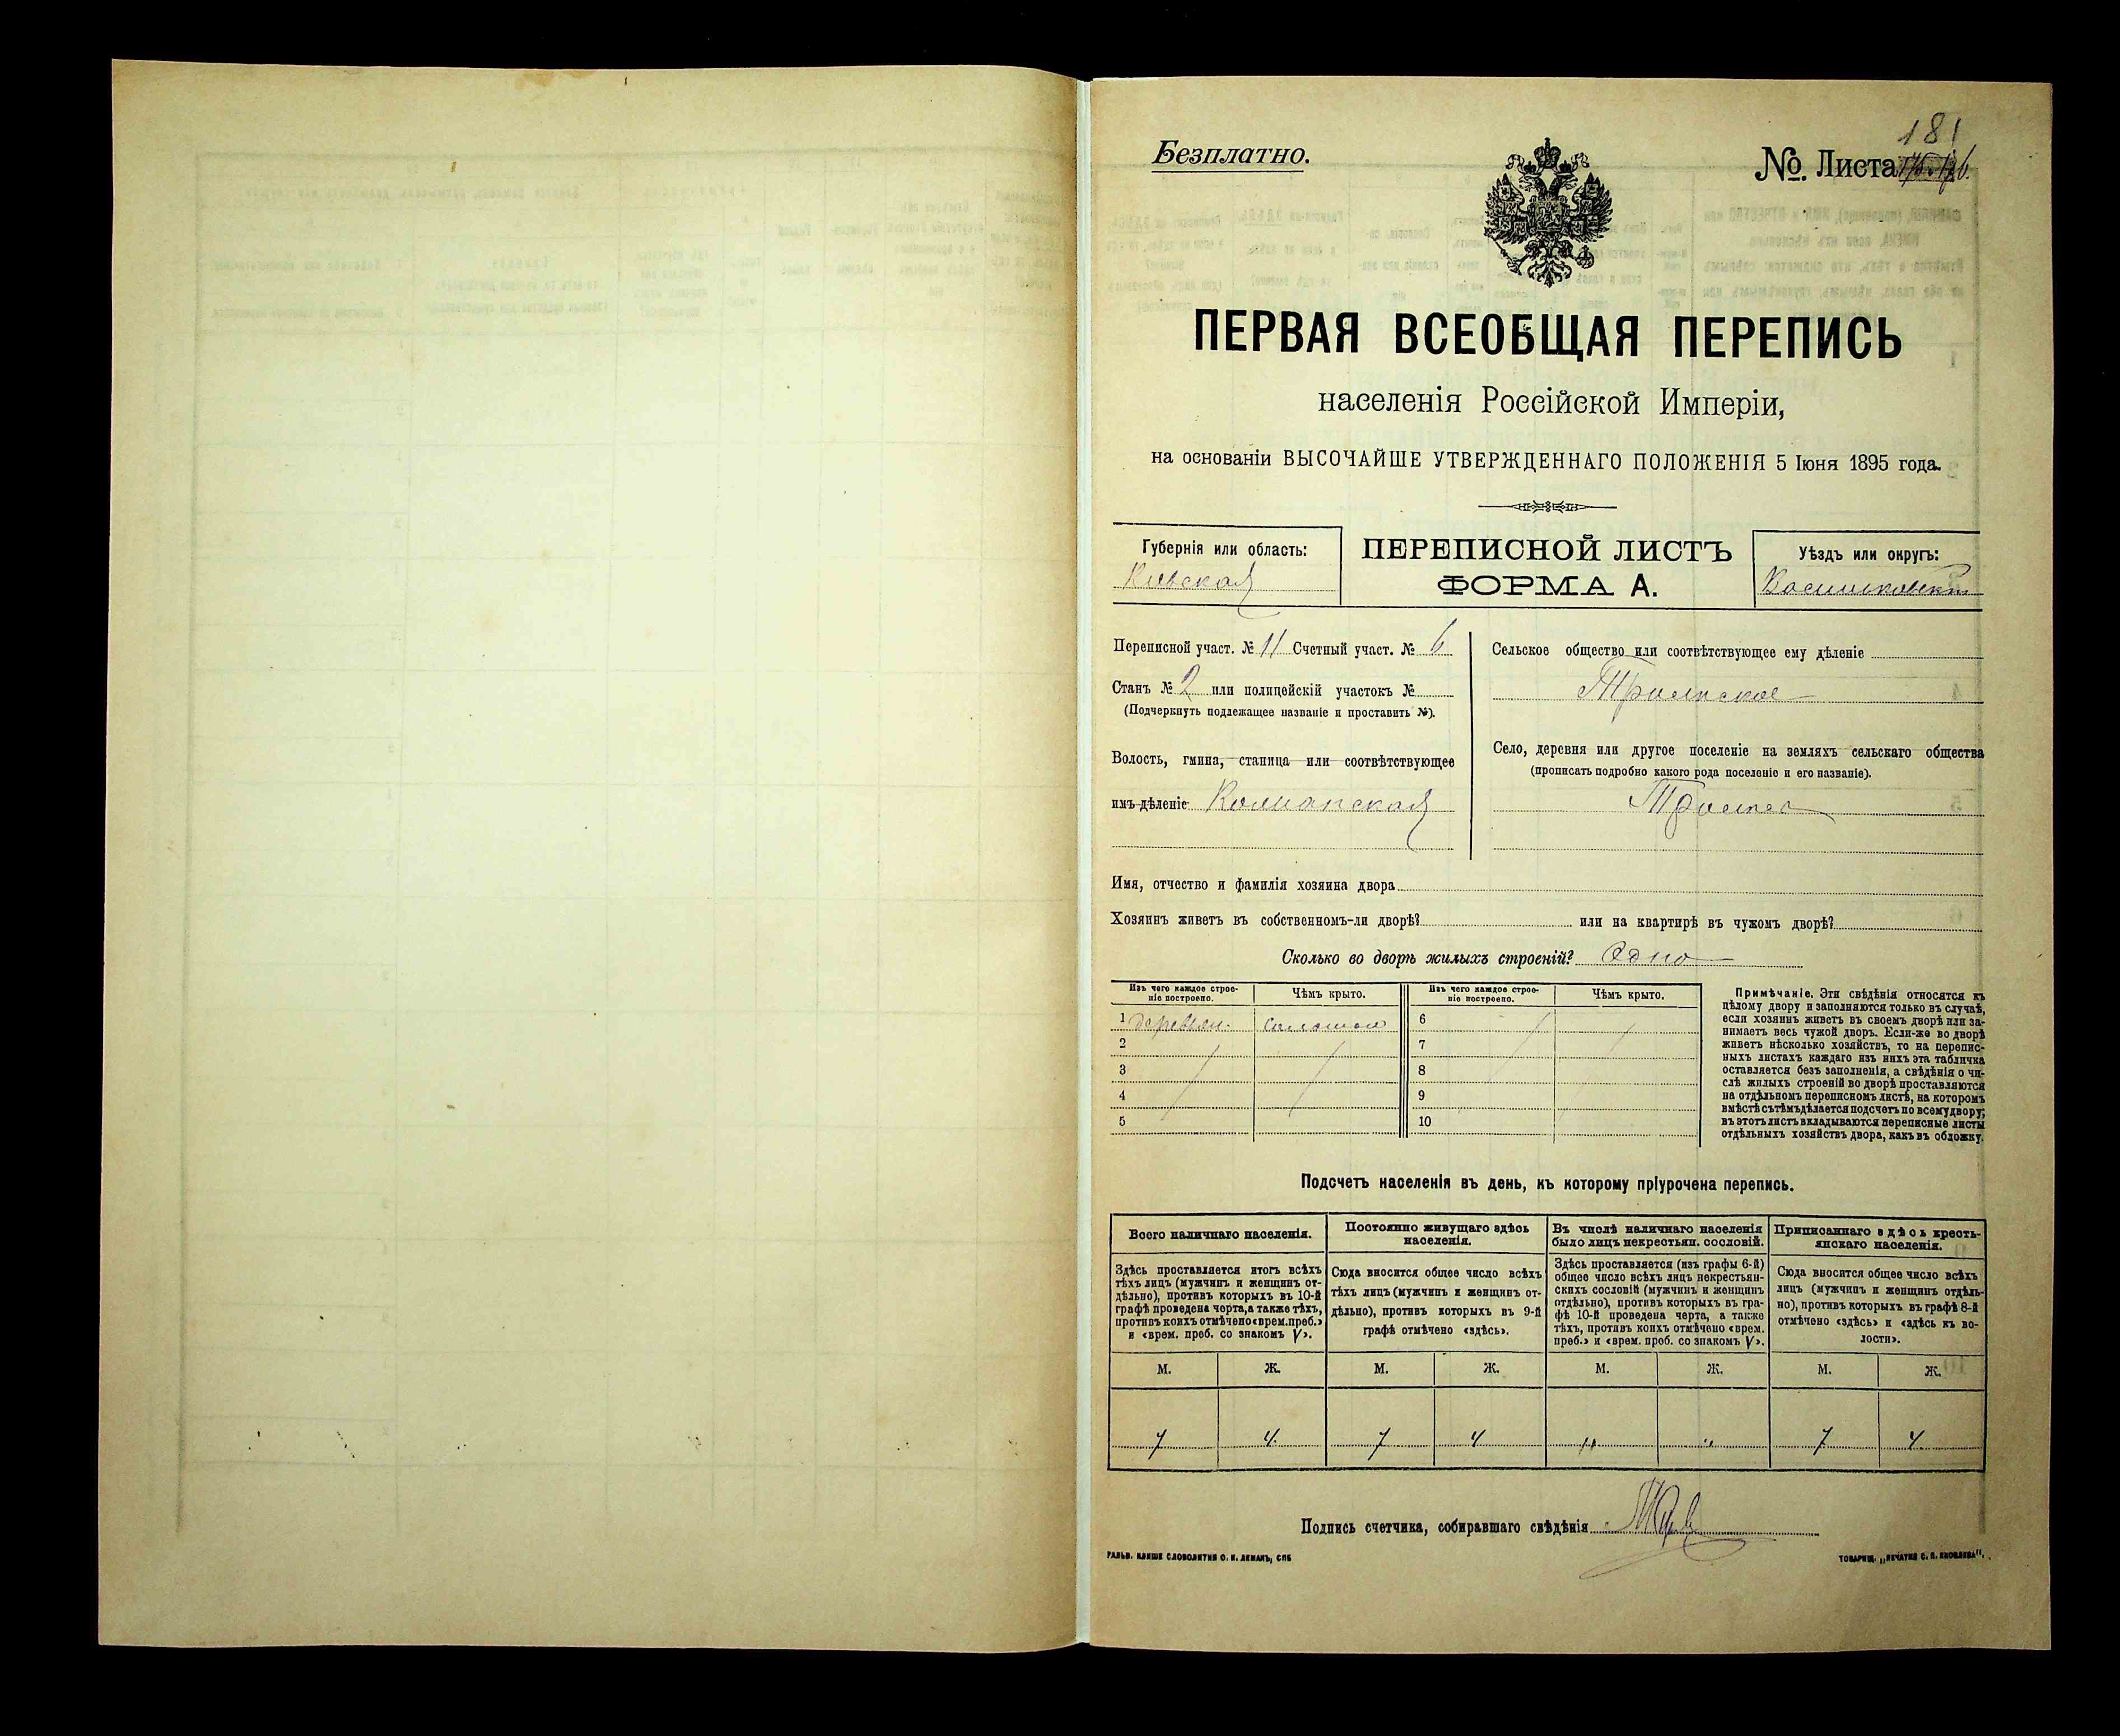 Безплатно.
181
№. Листа
ПЕРВАЯ ВСЕОБЩАЯ ПЕРЕПИСЬ
населенія Россійской Имперіи,
на основаніи ВЫСОЧАЙШЕ УТВЕРЖДЕННАГО ПОЛОЖЕНІЯ 5 Іюня 1895 года.
Губернія или область:
Кіевская
ПЕРЕПИСНОЙ ЛИСТЪ
ФОРМА А.
Уѣздъ или округъ:
Переписной участ. № 11 Счетный участ. № 6
Станъ № 2 или полицейскій участокъ №
(Подчеркнуть подлежащее названіе и проставить №).
Волость, гмина, станица или соотвѣтствующее
имъ дѣленіе
Сельское общество или соотвѣтствующее ему дѣленіе
Село, деревня или другое поселеніе на земляхъ сельскаго общества
(прописать подробно какого рода поселеніе и его названіе).
Имя, отчество и фамилія хозяина двора
Хозяинъ живетъ въ собственномъ-ли дворѣ? или на квартирѣ въ чужомъ дворѣ?
Сколько во дворѣ жилыхъ строеній? Одно
Изъ чего каждое строе-
ніе построено.
Чѣмъ крыто.
Изъ чего каждое строе-
ніе построено.
Чѣмъ крыто.
1 деревян. соломою 6
2 7
3 8
4 9
5 10
Примѣчаніе. Эти свѣдѣнія относятся къ
цѣлому двору и заполняются только въ случаѣ,
если хозяинъ живетъ въ своемъ дворѣ или за-
нимаетъ весь чужой дворъ. Если-же во дворѣ
живетъ нѣсколько хозяйствъ, то на перепис-
ныхъ листахъ каждаго изъ нихъ эта табличка
оставляется безъ заполненія, а свѣдѣнія о чи-
слѣ жилыхъ строеній во дворѣ проставляются
на отдѣльномъ переписномъ листѣ, на которомъ
вмѣстѣ съ тѣмъ дѣлается подсчетъ по всему двору;
въ этотъ листъ вкладываются переписные листы
отдѣльныхъ хозяйствъ двора, какъ въ обложку.
Подсчетъ населенія въ день, къ которому пріурочена перепись.
Всего наличнаго населенія.
Здѣсь проставляется итогъ всѣхъ
тѣхъ лицъ (мужчинъ и женщинъ от-
дѣльно), противъ которыхъ въ 10-й
графѣ проведена черта, а также тѣхъ,
противъ коихъ отмѣчено «врем. преб.»
и «врем. преб. со знакомъ V».
Постоянно живущаго здѣсь
населенія.
Сюда вносится общее число всѣхъ
тѣхъ лицъ (мужчинъ и женщинъ от-
дѣльно), противъ которыхъ въ 9-й
графѣ отмѣчено «здѣсь».
Въ числѣ наличнаго населенія
было лицъ некрестьян. сословій.
Здѣсь проставляется (изъ графы 6-й)
общее число всѣхъ лицъ некрестьян-
скихъ сословій (мужчинъ и женщинъ
отдѣльно), противъ которыхъ въ гра-
фѣ 10-й проведена черта, а также
тѣхъ, противъ коихъ отмѣчено «врем.
преб.» и «врем. преб. со знакомъ V».
Приписаннаго здѣсь кресть-
янскаго населенія.
Сюда вносится общее число всѣхъ
лицъ (мужчинъ и женщинъ отдѣль-
но), противъ которыхъ въ графѣ 8-й
отмѣчено «здѣсь» и «здѣсь къ во-
лости».
М. Ж. М. Ж. М. Ж. М. Ж.
7 4 7 4 " " 7 4
Подпись счетчика, собиравшаго свѣдѣнія
ГАЛЬВ. КЛИШЕ СЛОВОЛИТНИ О. И. ЛЕМАНЪ, СПБ
ТОВАРИЩ. „ПЕЧАТНЯ С. П. ЯКОВЛЕВА".